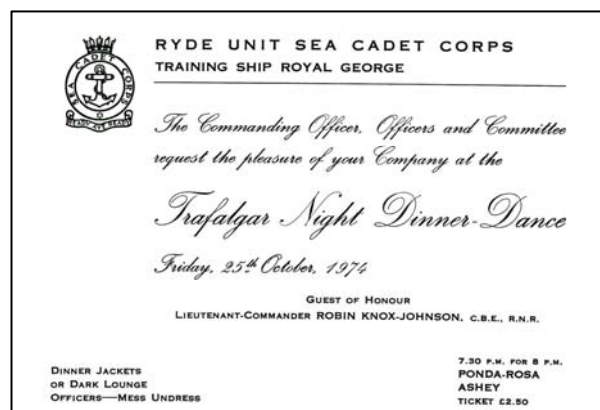 SEA CADET CORPS
READY AYE READY
RYDE UNIT SEA CADET CORPS
TRAINING SHIP ROYAL GEORGE
The Commanding Officer, Officers and Committee
request the pleasure of your Company at the
Trafalgar Night Dinner-Dance
Friday, 25th October, 1974
GUEST OF HONOUR
LIEUTENANT-COMMANDER ROBIN KNOX-JOHNSON, C.B.E., R.N.R.
DINNER JACKETS
OR DARK LOUNGE
OFFICERS—MESS UNDRESS
7.30 P.M. FOR 8 P.M.
PONDA-ROSA
ASHEY
TICKET £2.50